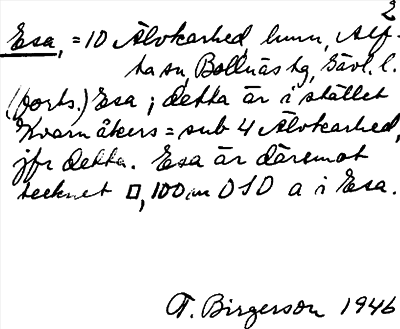 2
Esa, = 10 Älvkarhed, hmn, Alf-
ta sn, Bollnäs tg, Gävl. l.
(forts.) Esa; detta är i stället
Kvarnåkers = sub 4 Älvkarhed,
jfr detta. Esa är däremot
tecknet □, 100 m OSO a i Esa.
T. Birgerson 1946